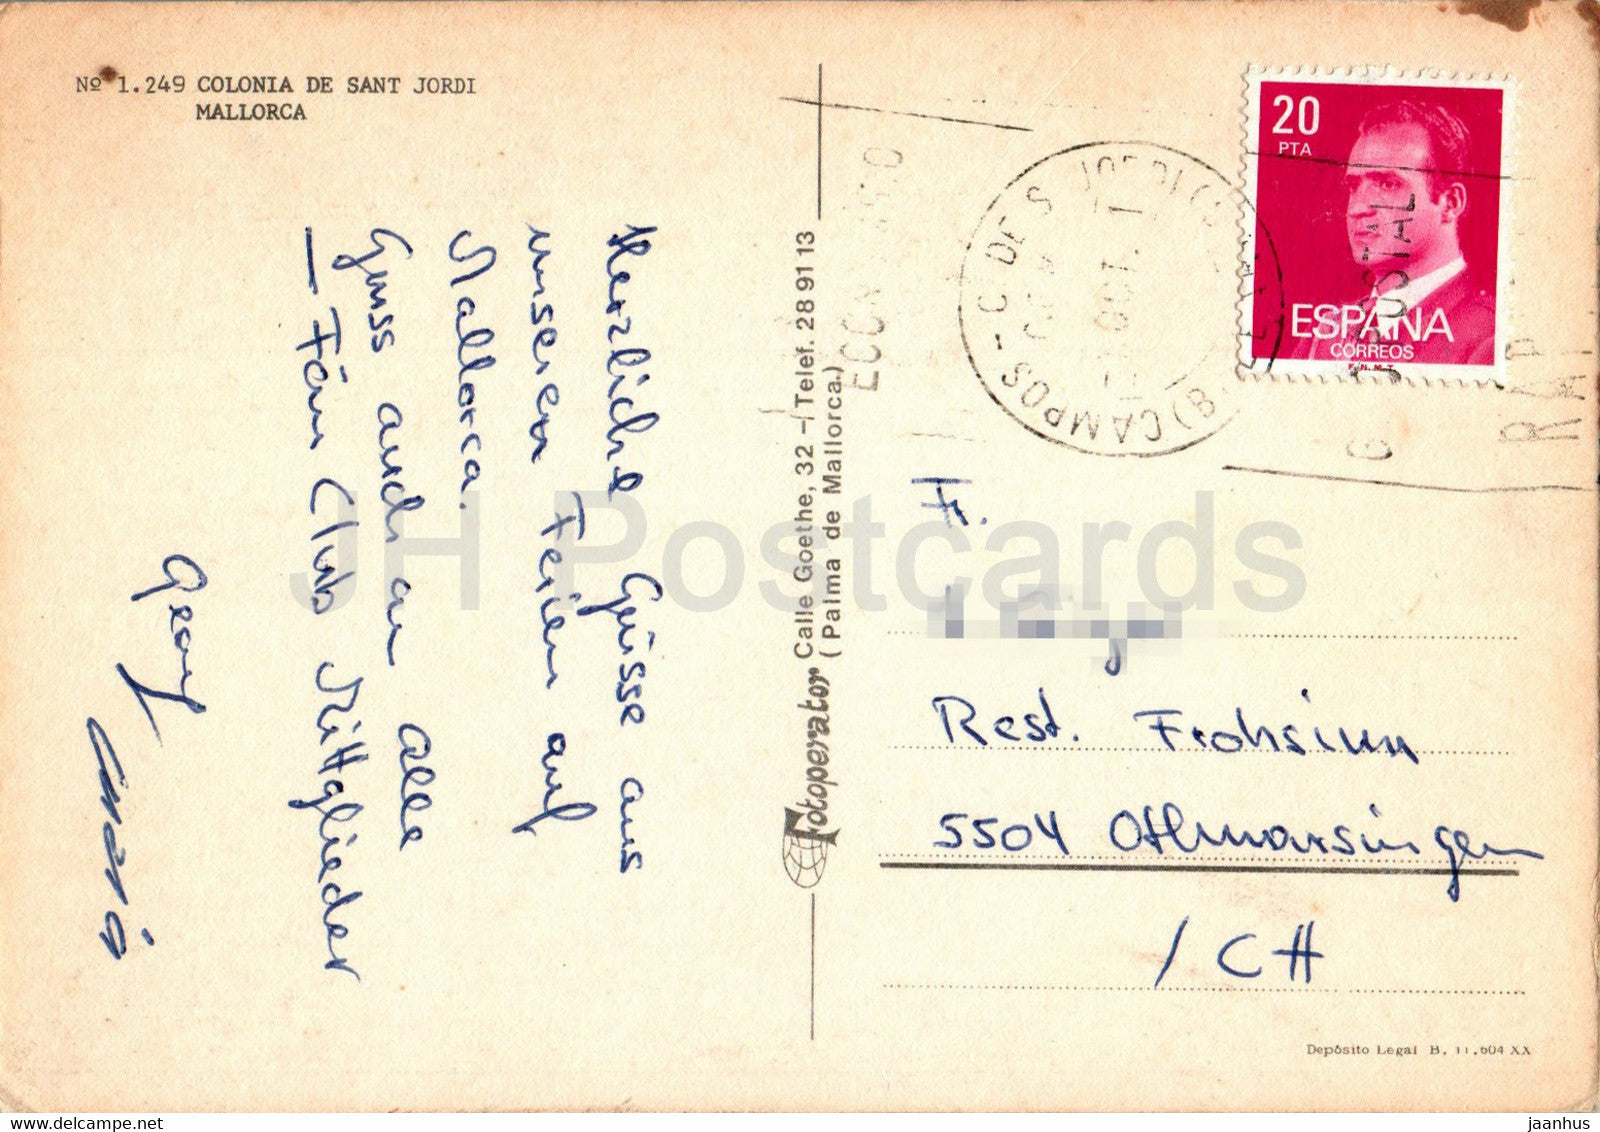 Nº 1.249 COLONIA DE SANT JORDI
MALLORCA
Herzliche Grüsse aus
unseren Ferien auf
Mallorca.
Gruss auch an alle
Fan Club Mittglieder
Georg
Maria
Fotoperator Calle Goethe, 32 - Telef. 28 91 13
( Palma de Mallorca.)
20
PTA
ESPAÑA
CORREOS
F.N.M.T.
CAMPOS - C DE S JORDI
OCT.
POSTAL
Fr.
Rest. Frohsinn
5504 Othmarsingen
/ CH
Depósito Legal B. 11.604 XX
JH Postcards
jaanhus